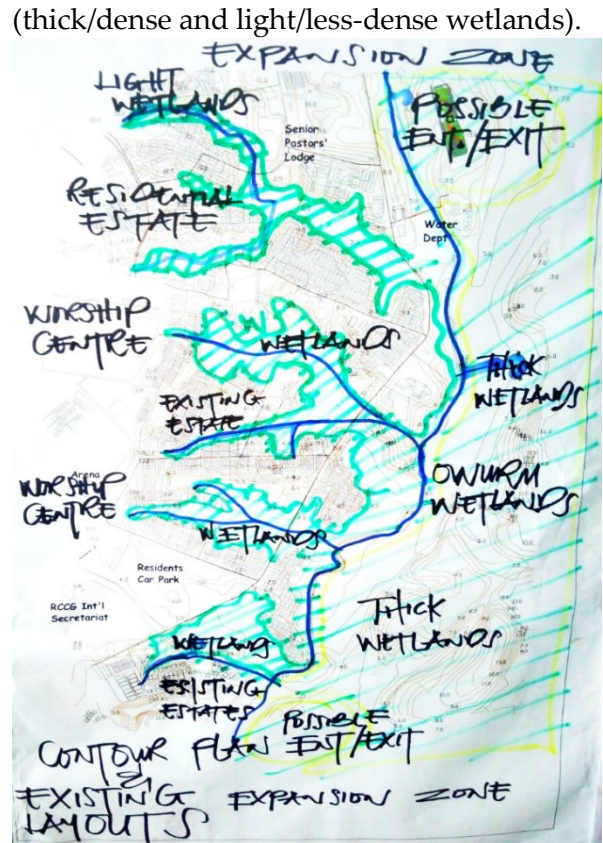 (thick/dense and light/less-dense wetlands).
EXPANSION ZONE
LIGHT
WETLANDS
POSSIBLE
ENT./EXIT
Senior
Pastors'
Lodge
RESIDENTIAL
ESTATE
Water
Dept
WORSHIP
CENTRE
WETLANDS
THICK
WETLANDS
EXISTING
ESTATE
Arena
WORSHIP
CENTRE
OWURM
WETLANDS
WETLANDS
Residents
Car Park
RCCG Int'l
Secretariat
THICK
WETLANDS
WETLANDS
ESISTING
ESTATES
POSSIBLE
ENT/EXIT
CONTOUR PLAN
&
EXISTING
LAYOUTS
EXPANSION ZONE